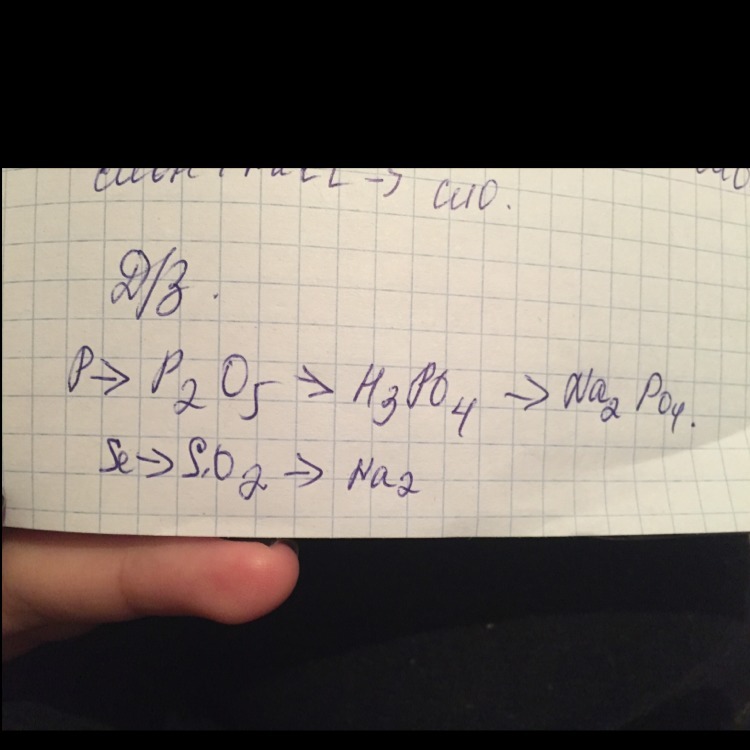 CuO.
Д/З.
P → P₂O₅ → H₃PO₄ → Na₂PO₄.
Se → SiO₂ → Na₂